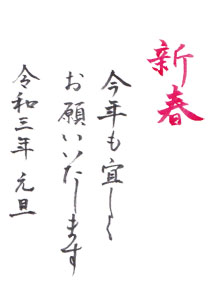 新春
今年も宜しく
お願いいたします
令和三年 元旦